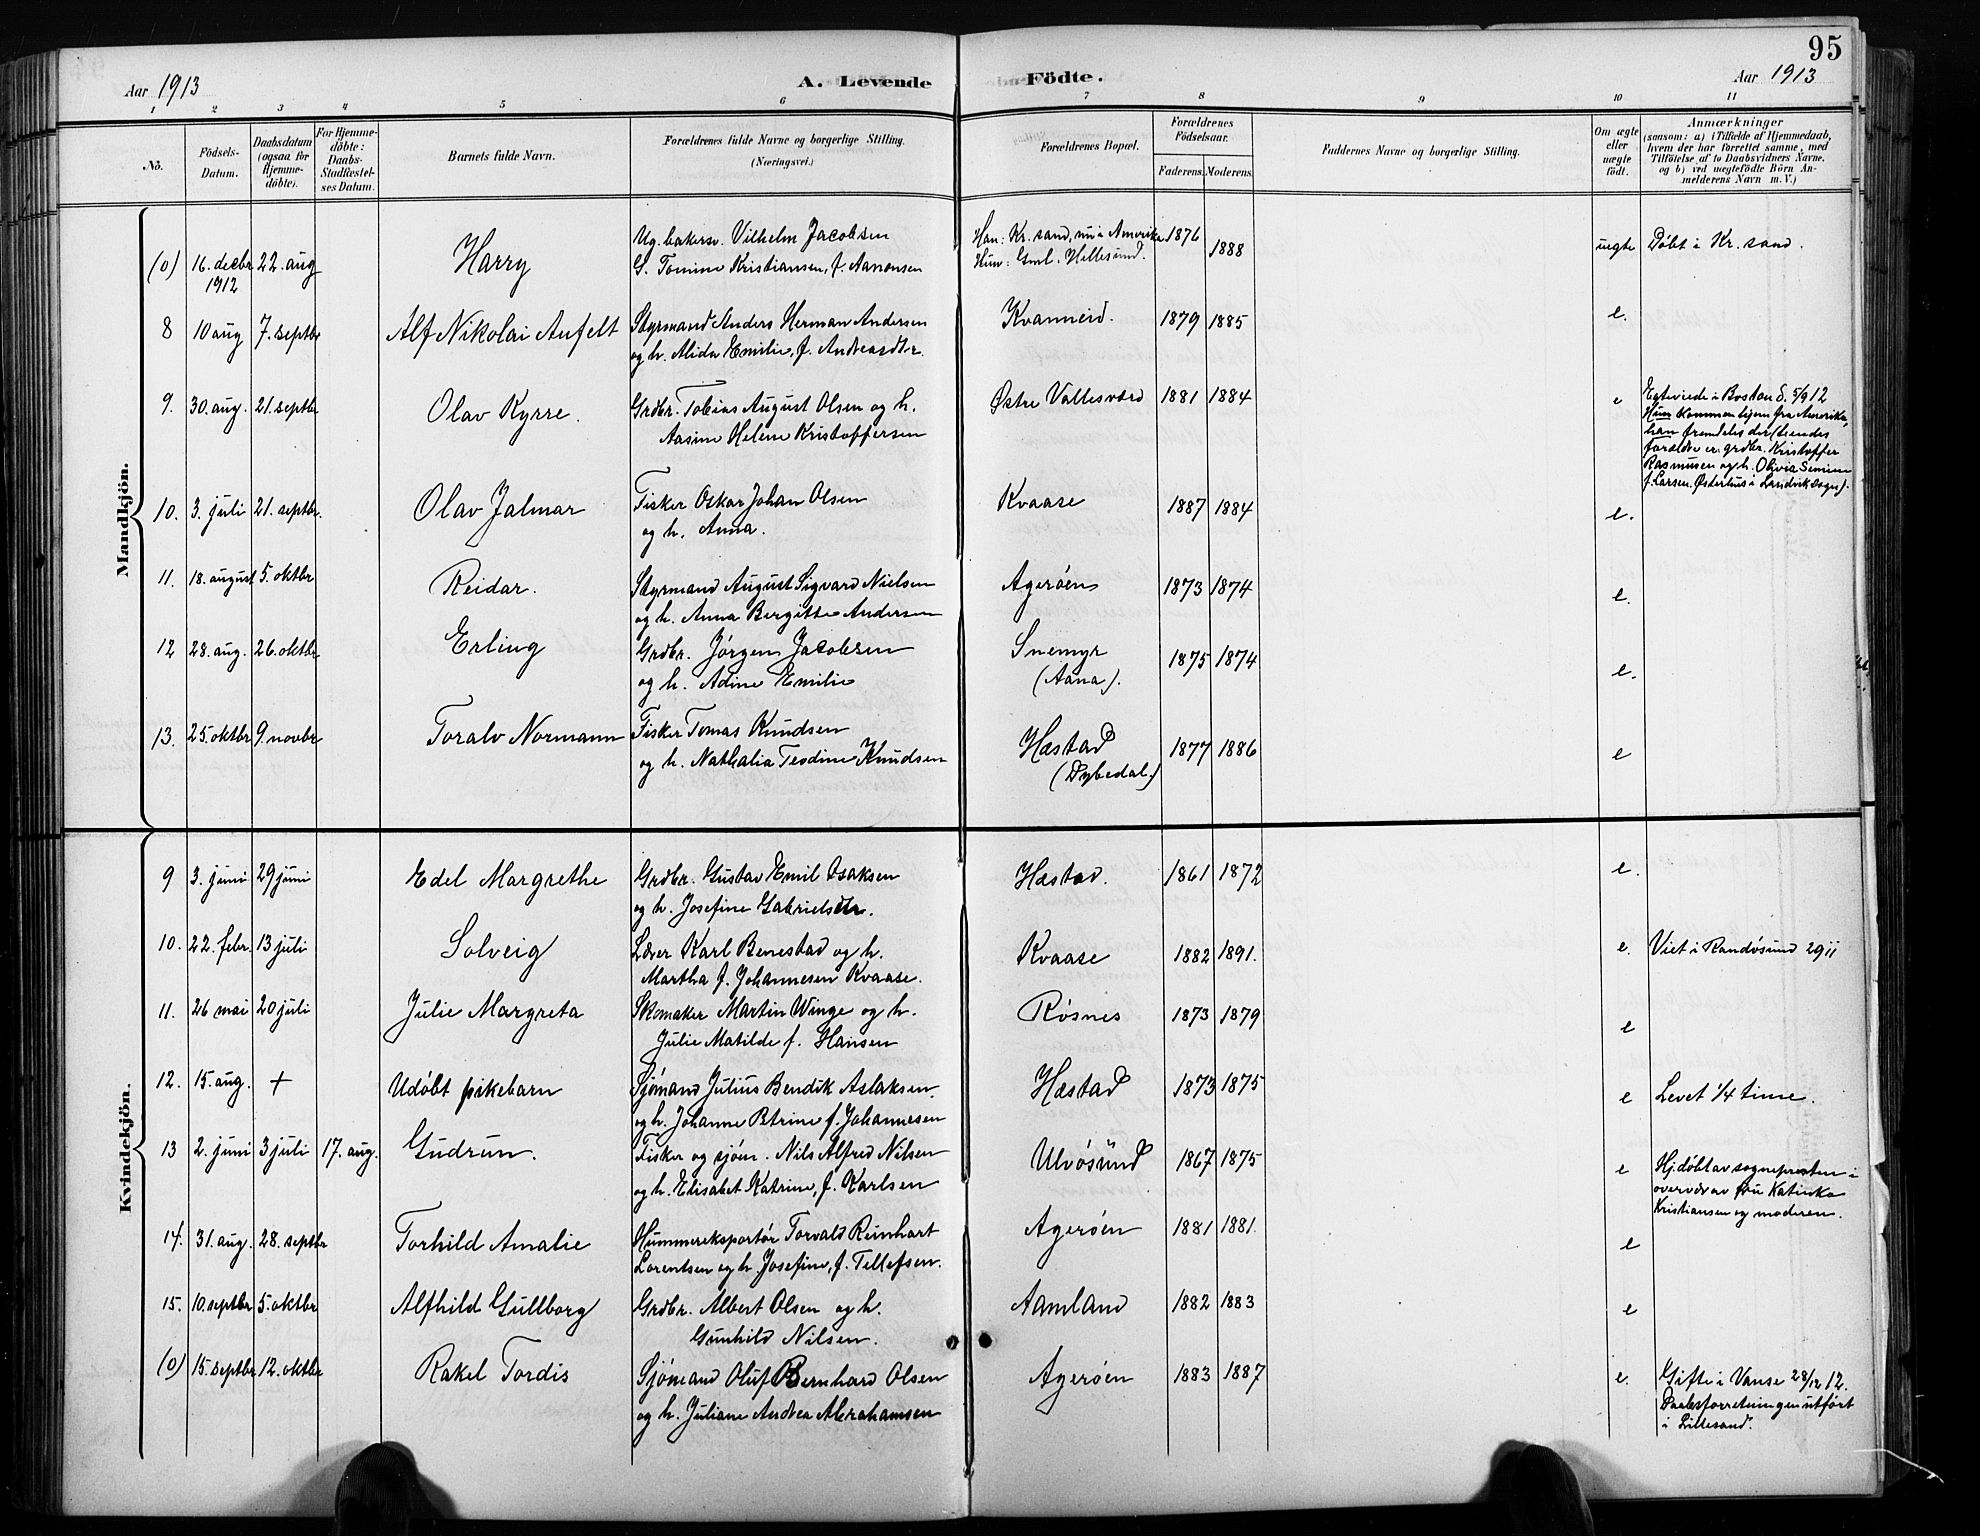 95
Aar 1913
A. Levende Födte.
Aar 1913
1 2 3 4 5 6 7 8 9 10 11
No.
Födsels-Datum.
Daabsdatum (ogsaa for Hjemmedöbte).
For Hjemmedöbte: Daabs-Stadfæstelses Datum.
Barnets fulde Navn.
Forældrenes fulde Navne og borgerlige Stilling. (Næringsvei.)
Forældrenes Bopæl.
Forældrenes Födselsaar.
Faderens. Moderens.
Faddernes Navne og borgerlige Stilling.
Om ægte eller uægte födt.
Anmærkninger
(saasom: a) i Tilfælde af Hjemmedaab,
hvem der har forrettet samme, med
Tilföielse af to Daabsvidners Navne.
og b) ved uægtefödte Börn Anmelderens Navn m. V.)
Mandkjön.
(0) 16. decbr 1912 22. aug Harry Ug. bakersv. Vilhelm Jacobsen Han: Kr.sand, nu i Amerika 1876 uegte Døbt i Kr.sand.
G. Tomine Kristiansen, f. Aanonsen Hun: Gml. Hellesund. 1888
8 10 aug 7. septbr Alf Nikolai Anfelt Styrmand Anders Herman Andersen Kvanneid. 1879 1885 e.
og h. Alida Emilie, f. Andreasdtr.
9. 30. aug. 21. septbr Olav Kyrre. Grdbr. Tobias August Olsen og h. Østre Vallesværd 1881 1884 e Egteviede i Boston d. 5/9 12
Aasine Helene Kristoffersen Hun kommen hjem fra Amerika,
han fremdeles der (hendes
forældre er: grdbr. Kristoffer
Rasmussen og h. Olivia Semine
f. Larsen. Østerhus i Landvik sogn).
10. 3. juli 21. septbr. Olav Jalmar Fisker Oskar Johan Olsen Kvaase 1887 1884 e.
og h. Anna.
11. 18. august 5. oktbr Reidar. Styrmand August Sigvard Nielsen Agerøen 1873 1874 e.
og h. Anna Bergitte Andersen
12 28. aug. 26. oktbr Erling Grdbr. Jørgen Jacobsen Snemyr 1875 1874 e.
og h. Adine Emilie (Aana).
13. 25. oktbr 9. novbr Toralv Normann Fisker Tomas Knudsen Hæstad 1877 1886 e
og h. Nathalia Teodine Knudsen (Dybedal.)
Kvindekjön.
9 3. juni 29 juni Edel Margrethe Grdbr. Gustav Emil Isaksen Hæstad. 1861 1872 e.
og h. Josefine Gabrielsdtr.
10. 22. febr. 13 juli Solveig Lærer Karl Benestad og h. Kvaase 1882 1891. e. Viet i Randøsund 29 11
Martha f. Johannesen Kvaase.
11. 26 mai 20 juli Julie Margreta Skomaker Martin Winge og h. Røsnes 1873 1879 e
Julie Matilde f. Hansen
12. 15. aug. + Udøbt pikebarn Sjømand Julius Bendik Aslaksen Hæstad 1873 1875 e Levet 1/4 time.
og h. Johanne Petrine f. Johannesen
13 2. juni 3 juli 17. aug. Gudrun. Fisker og sjøm. Nils Alfred Nilsen Ulvøsund 1867 1875 e Hj.døbt av sognepresten i
og h. Elisabet Katrine, f. Karlsen overvær av fru Katinka
Kristiansen og moderen.
14. 31. aug. 28. septbr Torhild Amalie Hummereksportør Torvald Reinhart Agerøen 1881 1881. e
Lorentsen og h. Josefine, f. Tellefsen.
15. 10. septbr 5. oktbr Alfhild Gullborg Grdbr. Albert Olsen og h. Aamland 1882 1883 e
Gunhild Nilsen.
(0) 15. septbr 12. oktbr Rakel Tordis Sjømand Oluf Bernhard Olsen Agerøen 1883 1887 e. Gifte i Vanse 28/12 12.
og h. Juliane Andrea Abrahamsen Daabsforretningen utført
i Lillesand.